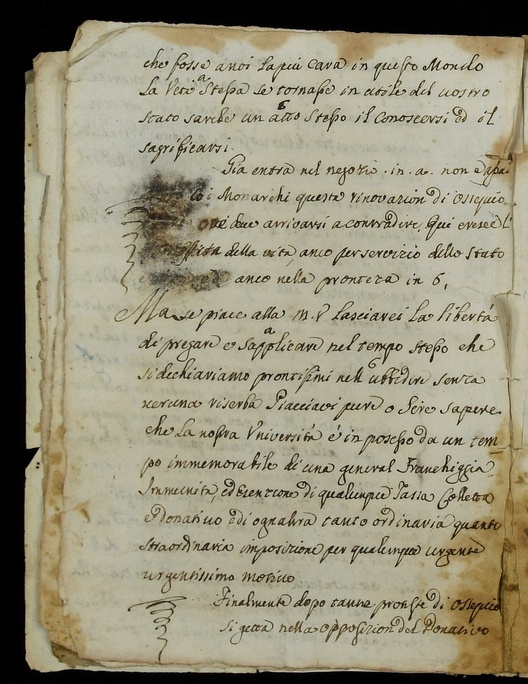 che fosse a noi la piu cara in questo Mondo
La Vita Stessa se tornasse in utile del vostro
stato sarebbe un atto Stesso il conoscersi ed il
sagrificarsi.
Già entra nel negozio . in . a . non è
i Monarchi queste rinovazion di Ossequio
due arrivarsi a contradire, Qui
della vita anco per servizio dello Stato
anco nella pronteza in 6,
Ma se piace alla M. V Lasciarci La libertà
di pregare e supplicare nel tempo stesso che
si dechiariamo prontissimi nell ubbedire senza
veruna riserba Piacciavi pure o Sire sapere
che La nostra Vniversità é in possesso da un tem
po immemorabile di una general Franchiggia
Immunità, ed Esenzione di qualunque Tassa Colletta
e Donativo e di ogn altra tanto ordinaria quanto
straordinaria imposizione per qualunque urgente
urgentissimo motivo
Finalmente dopo tante proteste di Ossequio
si getta nella opposizion del Donativo